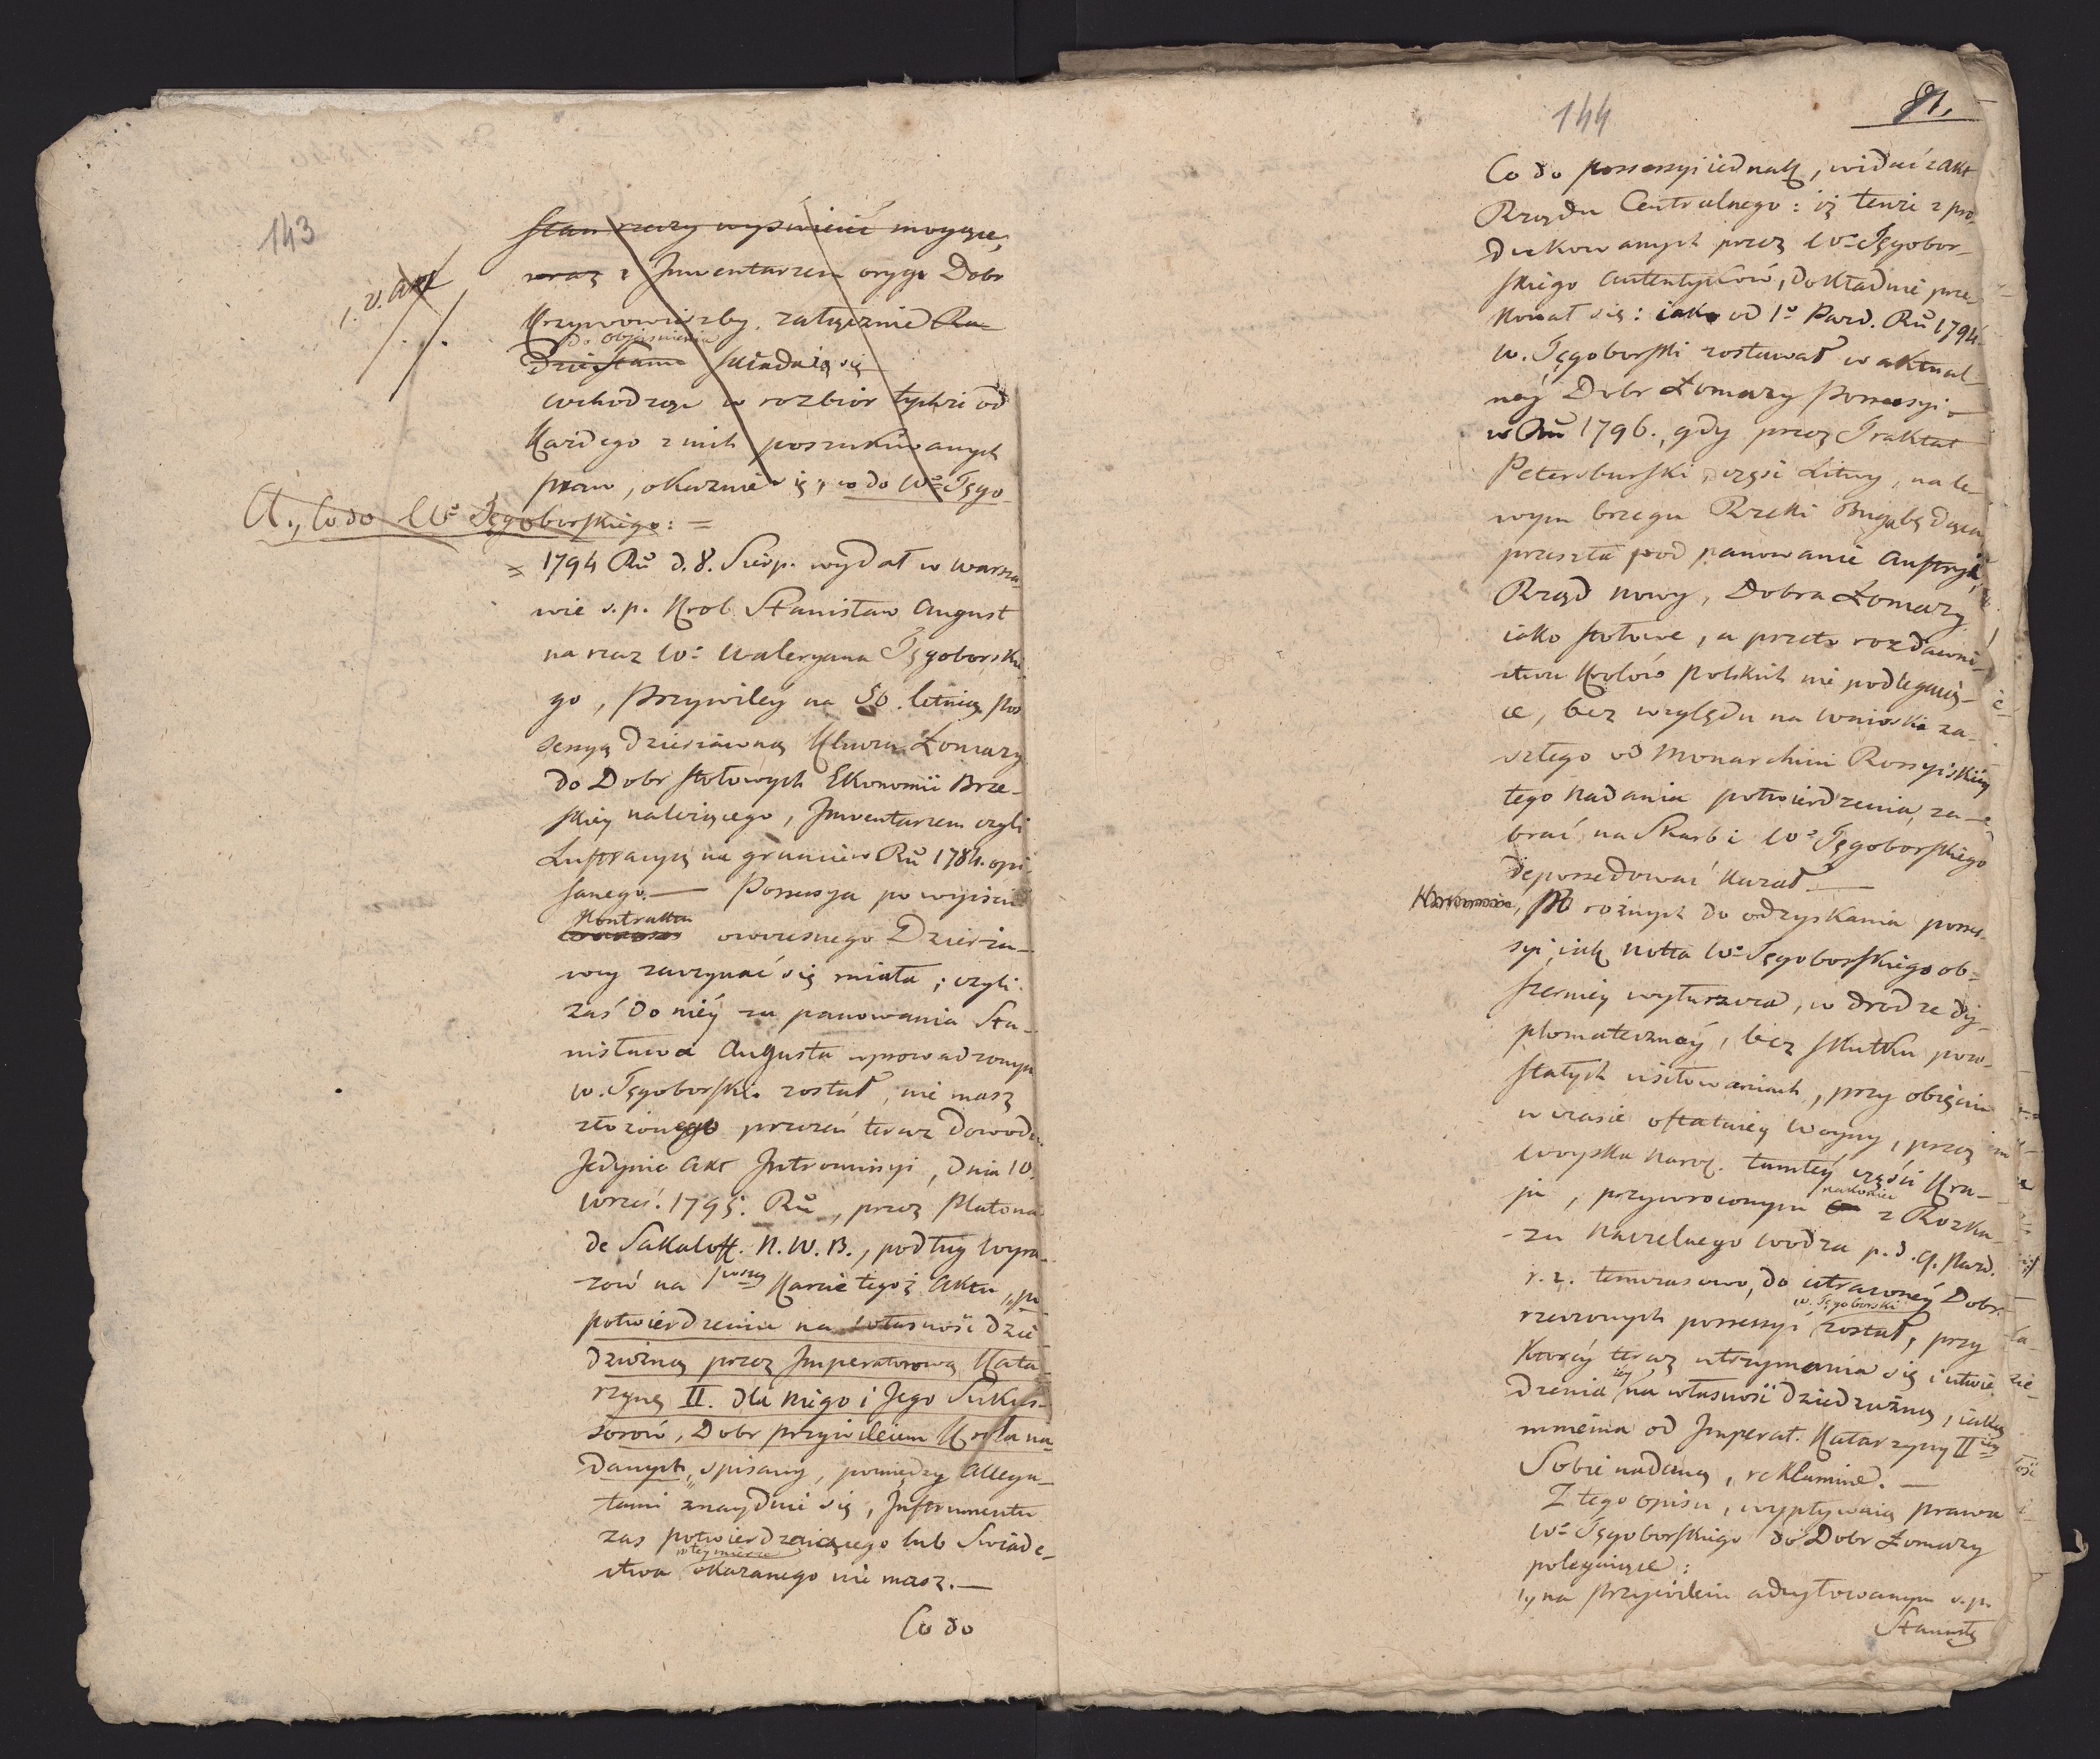 143
1. v. Akt
Stan rzeczy wyświecić mogące,
wraz z Jnwentarzem oryg. Dobr
Krzywowierzby, załącznie Ra-
do objasnienia
dziestamu składaią się
wchodząc w rozbior tychże od
każdego z nich poszukiwanych
praw, okazuie się, co do Wo Tęgo-
A., Co do Wo Tęgoborskiego: =
= 1794 Ru d. 8. Sierp. wydał w Warsza-
wie s. p. Krol Stanisław August
na rzecz Wo Waleryana Tęgoborskie-
go, Przywiley na 50. letnią Pos-
sessyą dzierżawną Klucza Łomazy
do Dobr stołowych Ekonomii Brze-
skiey należącego, Jnwentarzem czyli
Lustracyą na gruncie w Ru 1784. opi-
sanego. — Possessya po wyiściu
Kontraktu
owczesnego Dzierża-
wcy zaczynać się miała; czyli
zaś do niéy za panowania Sta-
nisława Augusta wprowadzonym
W. Tęgoborski został, nie masz
złożonego przezeń teraz dowodu.
Jedynie Akt Jntromissyi, dnia 10.
Wrześ. 1795. Ru, przez Platona
de Sakaloff. N. W. B., podług wyra-
zow na 1wszey Karcie tegoż Aktu „po
potwierdzeniu na własność dzie-
dziczną przez Jmperatorową Kata-
rzynę II. dla niego i Jego Sukces-
sorów, Dobr przywileiem Krola na-
danych„ spisany, pomiędzy Allega-
tami znayduie się, Jnstrumentu
zas potwierdzaiącego lub Swiade-
w tey mierze
ctwa okazanego nie masz. —
Co do
144
81.
Co do possessyi iednak, widać z akt
Rządu Centralnego: iż tenże z pro-
dukowanych przez Wo Tęgobor-
skiego autentyków, dokładnie prze-
konał się: iako od 1o Pazd. Ru 1794.
W. Tęgoborski zostawał w aktual-
néy Dobr Łomazy Possessyi —
w Ru 1796., gdy przez Traktat
Petersburski, część Litwy, na le-
wym brzegu Rzeki Bugu będąca
przeszła pod panowanie Austryi,
Rząd nowy, Dobra Łomazy
iako stołowe, a przeto rozdawni-
ctwu Krolów Polskich nie podlegaią-
ce, bez względu na wnioski za-
szłego od Monarchini Rossyiskiey
tego nadania potwierdzenia, za-
brać na Skarb i Wo Tęgoborskiego
depossedować kazał —
Po rożnych do odzyskania posses-
syi, iak notta Wo Tęgoborskiego ob-
szerniey wyłuszcza, w drodze dy-
plomatyczney, bez skutku pozo-
stałych usiłowaniach, przy obięciu
w czasie ostatniey Woyny, przez
woyska Narod. tamtéy części Kra-
nakoniec
ju, przywroconym z Rozka-
zu Naczelnego Wodza p. d. 9. Pazd.
r. z. tymczasowo, do utraconéy Dobr
W. Tęgoborski
rzeczonych possessyi został, przy
ktoréy teraz utrzymania się i utwier-
iey
dzenia na własność dziedziczną, iako
mniema od Jmperat. Katarzyny IIiey
Sobie nadaną, reklamuie. —
Z tego opisu, wypływaią prawa
Wo Tęgoborskiego do Dobr Łomazy
polegaiące:
1, na Przywileiu adcytowanym s. p.
Stanisła